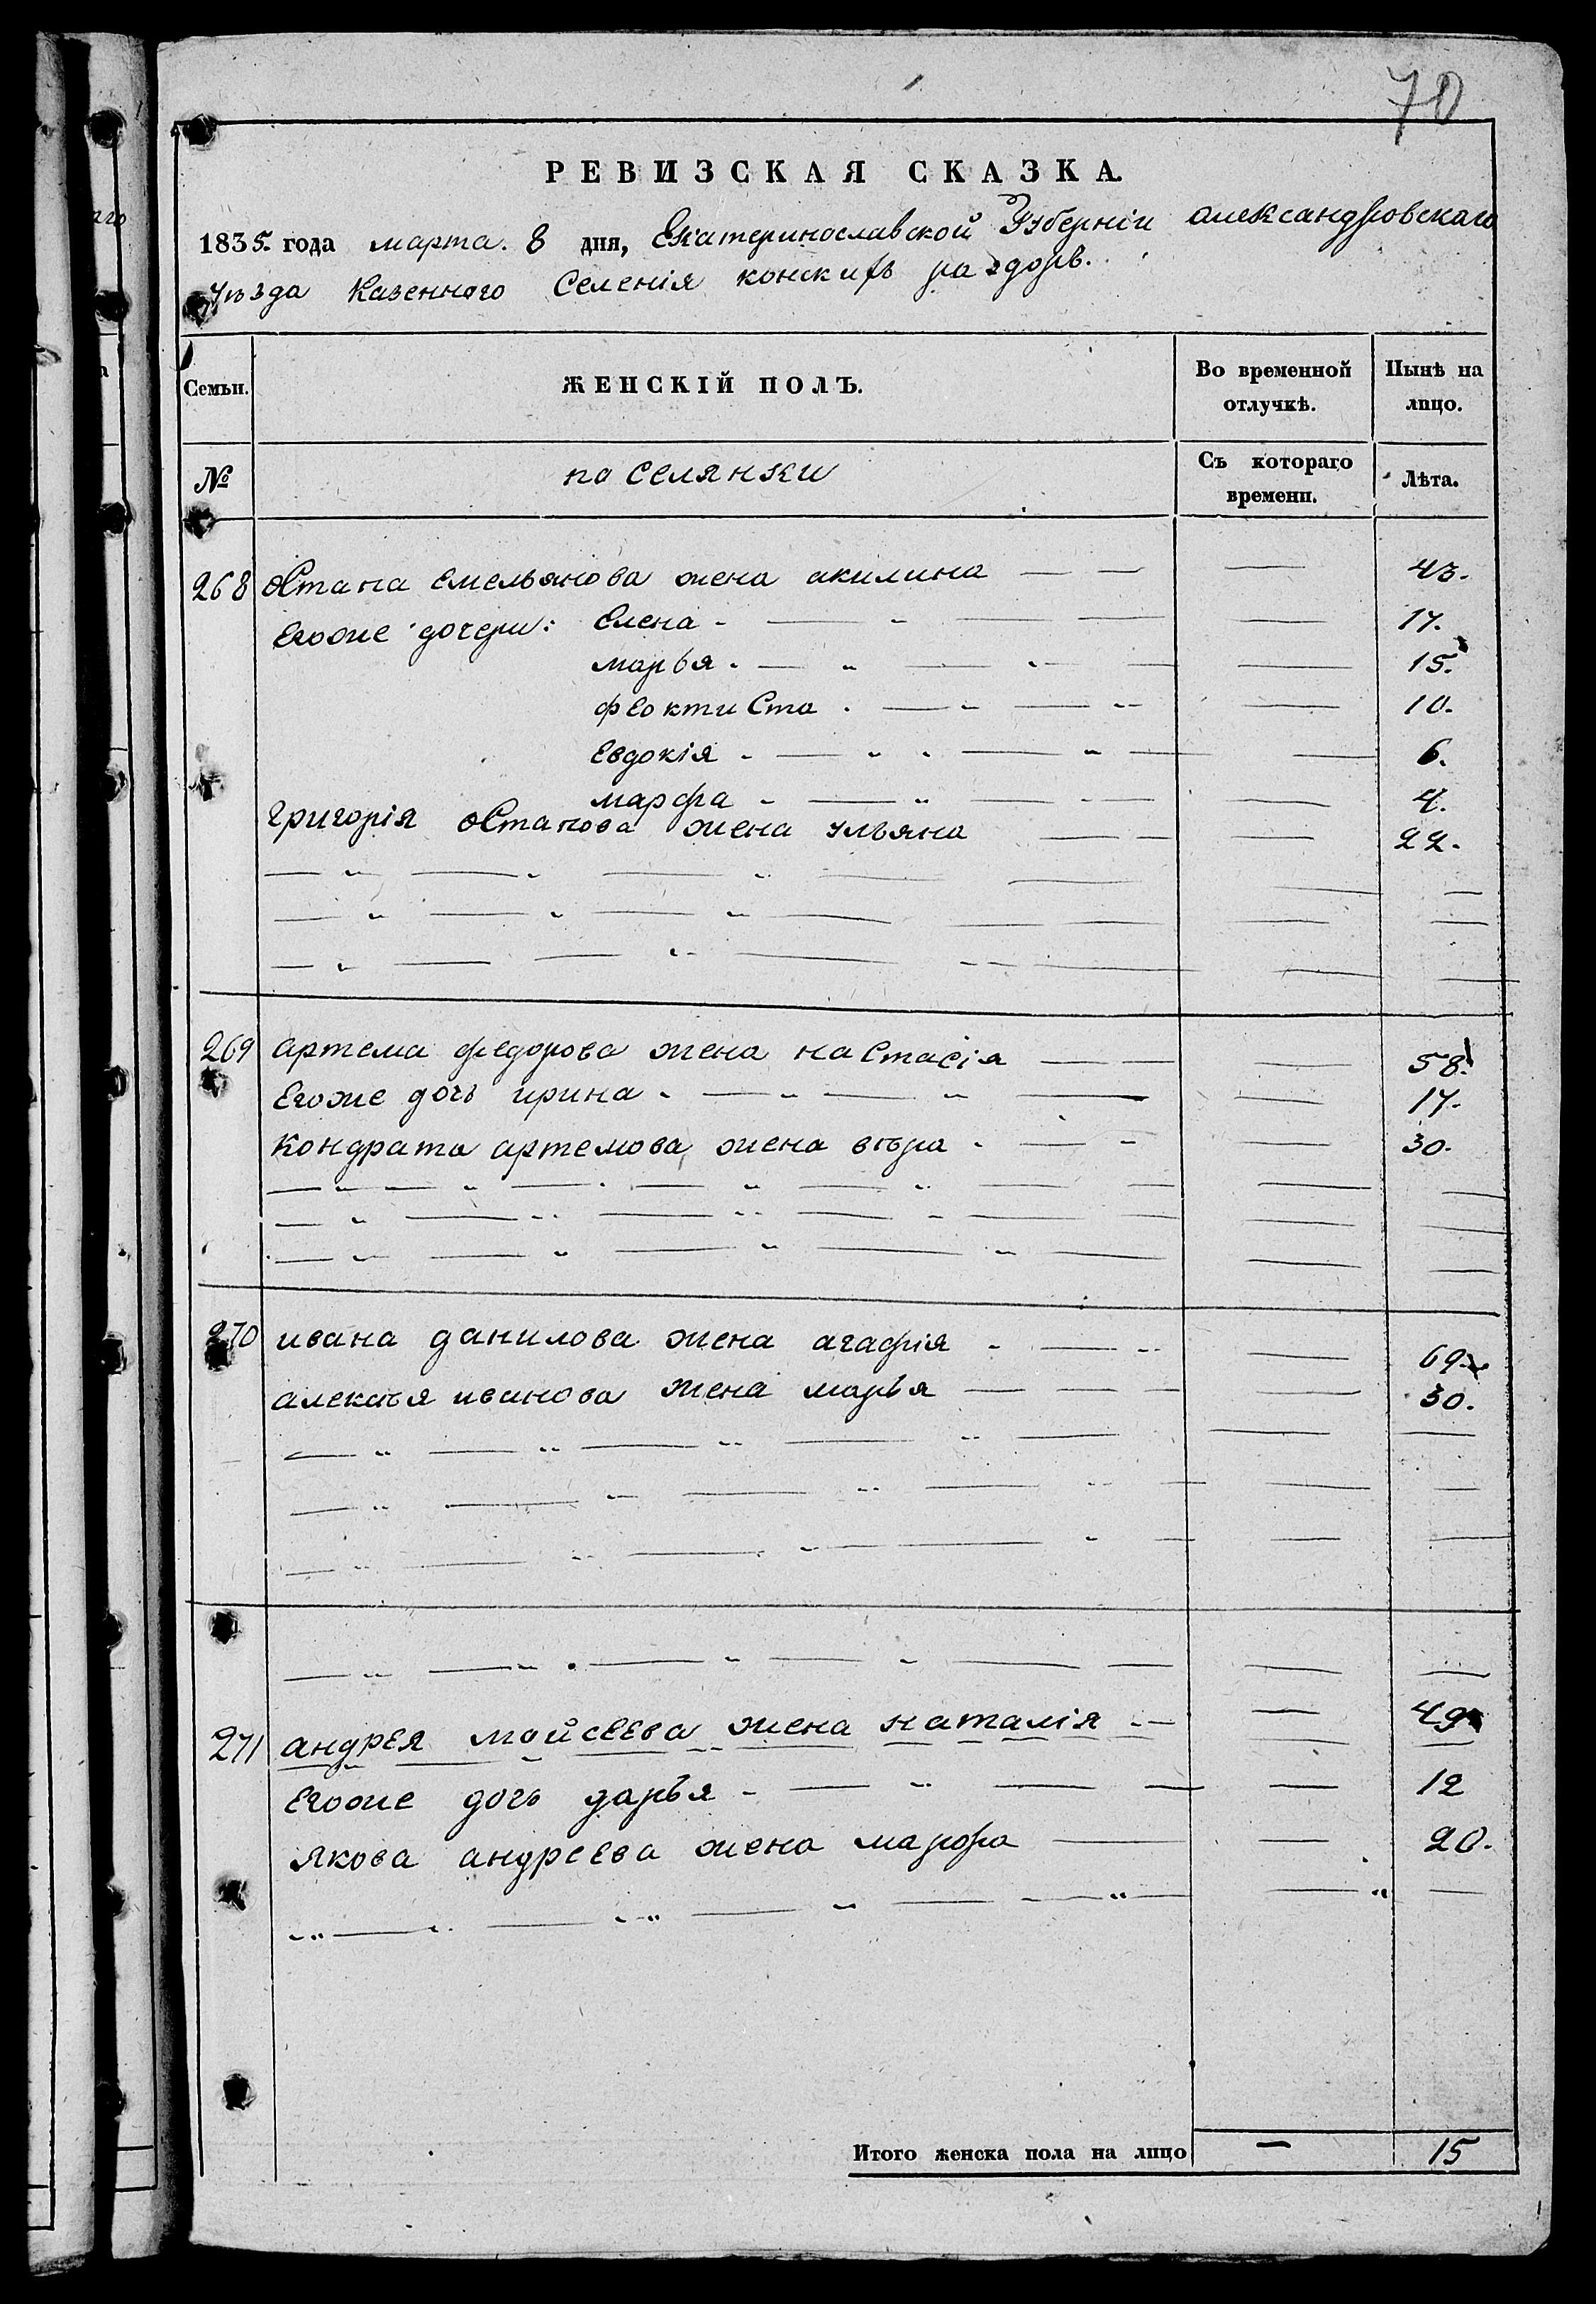 70
РЕВИЗСКАЯ СКАЗКА.
1835. года марта. 8 дня, Екатеринославской Губерніи александровскаго
Уѣзда Казенного Селенія конских раздоръ.
Семьи. ЖЕНСКІЙ ПОЛЪ. Во временной отлучкѣ. Нынѣ на лицо.
№ поселянки Съ котораго времени. Лѣта.
268 остапа емельянова жена акилина 43.
Егоже дочери: Елена 17.
марья 15.
феоктиста 10.
Евдокія 6.
марфа 4.
григорія остапова жена ульяна 22.
269 артема федорова жена настасія 58.
Егоже дочь ирина 17.
кондрата артемова жена вѣра 30.
270 ивана данилова жена агафія 69.
алексѣя иванова жена марья 30.
271 андрея мойсеева жена наталія 49
Егоже дочь дарья 12
Якова андреева жена марфа 20.
Итого женска пола на лицо — 15